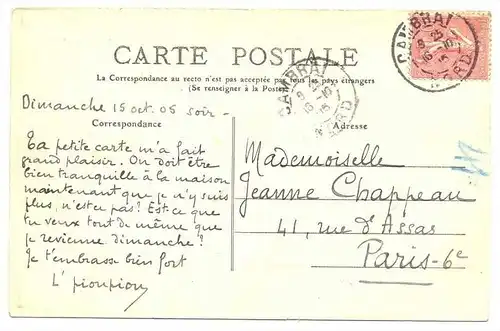 CARTE POSTALE
La Correspondance au recto n'est pas acceptée par tous les pays étrangers
(Se renseigner à la Poste)
CAMBRAI
9 25
16 -10
05
NORD
CAMBRAI
16 -10
05
NORD
Dimanche 15 oct. 05 soir -
Correspondance
Adresse
Ta petite carte m'a fait
grand plaisir. On doit être
bien tranquille à la maison
maintenant que je n'y suis
plus, n'est-ce pas? Est-ce que
tu veux tout de même que
je revienne dimanche?
Je t'embrasse bien fort
L'pioupiou
Mademoiselle
Jeanne Chappeau
41, rue d'Assas
Paris-6e